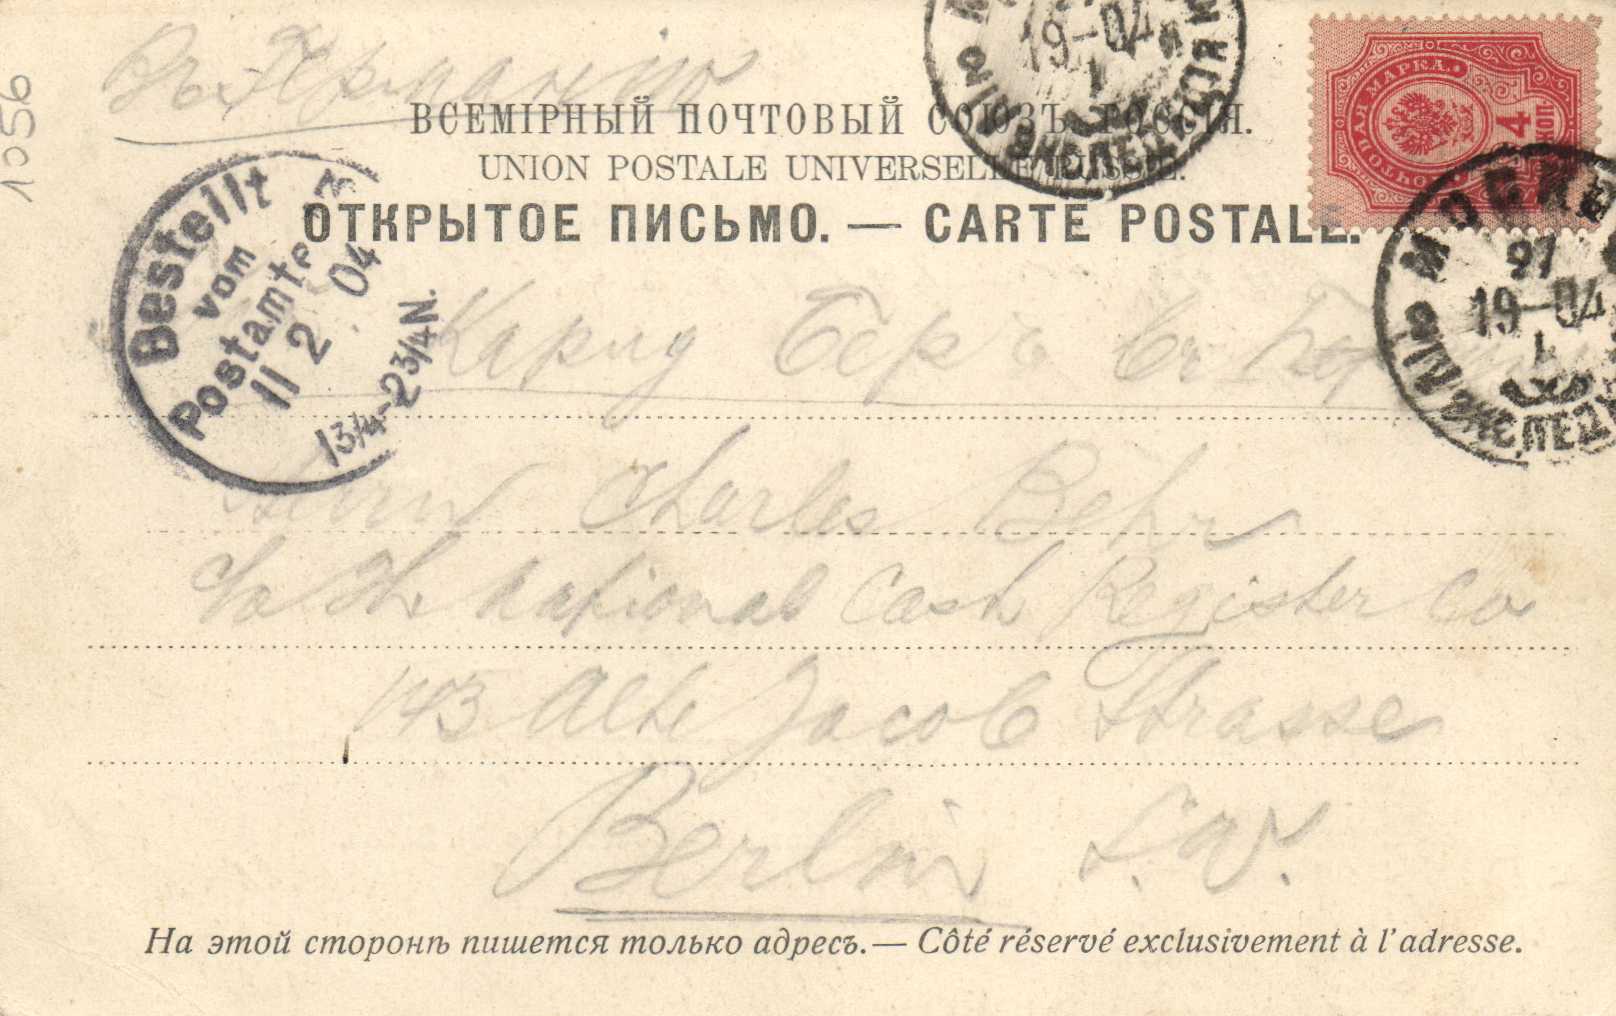 1056
Въ Германію
ВСЕМІРНЫЙ ПОЧТОВЫЙ СОЮЗЪ. РОССІЯ.
UNION POSTALE UNIVERSELLE RUSSIE.
ОТКРЫТОЕ ПИСЬМО. — CARTE POSTALE.
19-04
I
ПОЧТОВАЯ МАРКА.
4 КОП.
МОСКВА
97
19-04
I
Bestellt
vom
Postamte 3
11 2 04
1 3/4-2 3/4 N.
Карлу Беръ въ
Herrn Charles Behr
c/o The National Cash Register Co
143 Alte Jacob Strasse
Berlin S.W.
На этой сторонѣ пишется только адресъ.— Côté réservé exclusivement à l'adresse.